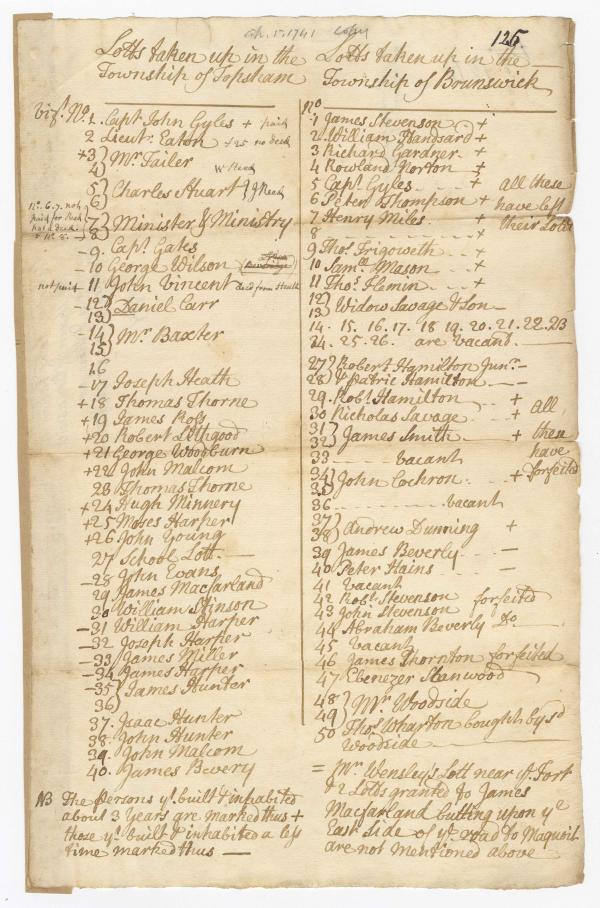 ch. 1. 1741 copy
126.
Lotts taken up in the
Township of Topsham
Vizt. No. 1. Capt John Gyles + paid
2 Lieut. Eaton +25 no deed
+3)
4) Mr. Tailer
W Reed
5)
6) Charles Stuart J Reed
No. 6. 7. not
paid for
not a deed
+ No 8. -
7)
8) Minister & Ministry
- 9. Capt. Gates
- 10 George Wilson
not paid 11 John Vincent deed from Heath
- 12)
13) Daniel Carr
- 14)
15) Mr Baxter
16
- 17 Joseph Heath
+ 18 Thomas Thorne
+ 19 James Ross
+20 Robert Lithgood
+21 George Woodburn
+22 John Malcom
23 Thomas Thorne
+24 Hugh Minnery
+25 Moses Harper
+26 John Young
27 School Lott. —
- 28 John Evans
29 James Macfarland
30 William Stinson
- 31 William Harper
- 32 Joseph Harper
- 33 James Miller
- 34 James Harper
- 35)
36) James Hunter
37. Isaac Hunter
38. John Hunter
39. John Malcom
40. James Bevery
NB The Persons yt. built & inhabited
about 3 Years are marked thus +
those yt. built & inhabited a less
time marked thus —
Lotts taken up in the
Township of Brunswick
No
1 James Stevenson +
2. William Handsard +
3 Richard Gardner +
4 Rowland Horton +
5 Capt. Gyles +
6 Peter Thompson +
7 Henry Miles +
8 +
all these
have left
their Lotts
9 Thos. Trigoweth +
10 Samll. Mason +
11 Thos. Flemin +
12)
13) Widow Savage & Son —
14. 15. 16. 17. 18 19. 20. 21. 22. 23
24. 25. 26. are vacant. —
27) Robert Hamilton Junr. —
28) & Patric Hamilton —
29. Robt. Hamilton +
30 Nicholas Savage +
31)
32) James Smith +
all
these
have
forfeited
33 vacant
34)
35) John Cochron +
36 vacant
37)
38) Andrew Dunning +
39 James Beverly —
40 Peter Hains —
41 vacant
42 Robt. Stevenson forfeited
43 John Stevenson
44 Abraham Beverly Do
45 vacant
46 James Thornton forfeited
47 Ebenezer Stanwood
48)
49) Mr Woodside
50 Thos. Wharton bought by sd
Woodside
= Mr. Wensley's Lott near ye. Fort
& 2 Lotts granted to James
Macfarland butting upon ye
East Side of ye. road to Maquoit
are not mentioned above